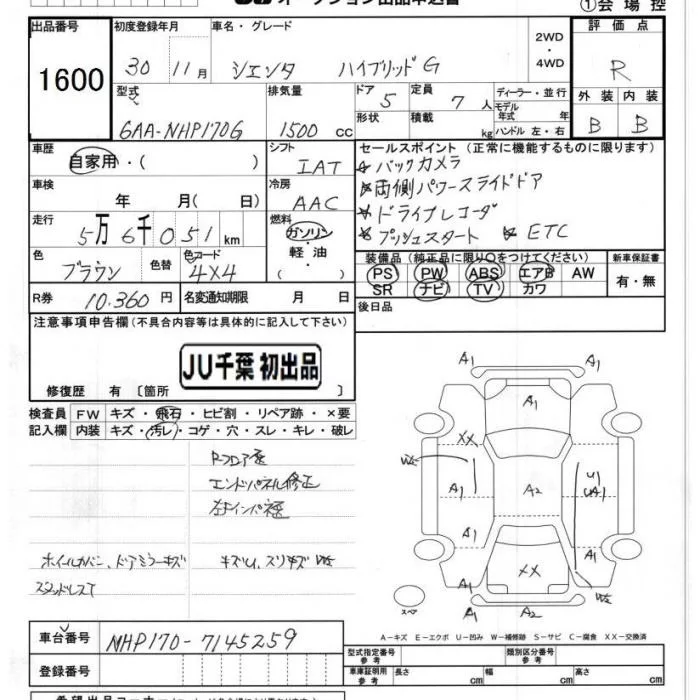 ①会場控
出品番号 初度登録年月 車名・グレード 評価点
1600
30 11月 シエンタ ハイブリッドG 2WD・4WD R
型式 排気量 ドア 定員 ディーラー・並行 外装 内装
6AA-NHP170G 1500cc 5 7人 モデル年式 年 B B
形状 積載 kg ハンドル 左・右
車歴 シフト セールスポイント (正常に機能するものに限ります)
自家用・( ) IAT バックカメラ
車検 冷房 両側パワースライドドア
年 月( 日) AAC ドライブレコーダ
走行 燃料 プッシュスタート ETC
5万6千051km ガソリン・軽油・( )
色 色替 色コード 装備品 (純正品に限り○をつけてください) 新車保証書
ブラウン 4X4 PS PW ABS エアB AW 有・無
SR ナビ TV カワ
R券 10,360円 名変通知期限 月 日 後日品
注意事項申告欄(不具合内容等は具体的に記入して下さい)
JU千葉 初出品
修復歴 有 〔箇所 〕
検査員 FW キズ・飛石・ヒビ割・リペア跡・×要
記入欄 内装 キズ・汚レ・コゲ・穴・スレ・キレ・破レ
エンドパネル修正
ホイールカバー、ドアミラーキズ
スタッドレスT
A1 A1
A1
XX
A1 A2 U1
A1 A1
XX
A1 A1
A2
スペア
A－キズ E－エクボ U－凹み W－補修跡 S－サビ C－腐食 XX－交換済
車台番号 NHP170-7145259
登録番号
型式指定番号 参考 類別区分番号 参考
車体証明用 参考 長さ cm 幅 cm 高さ cm